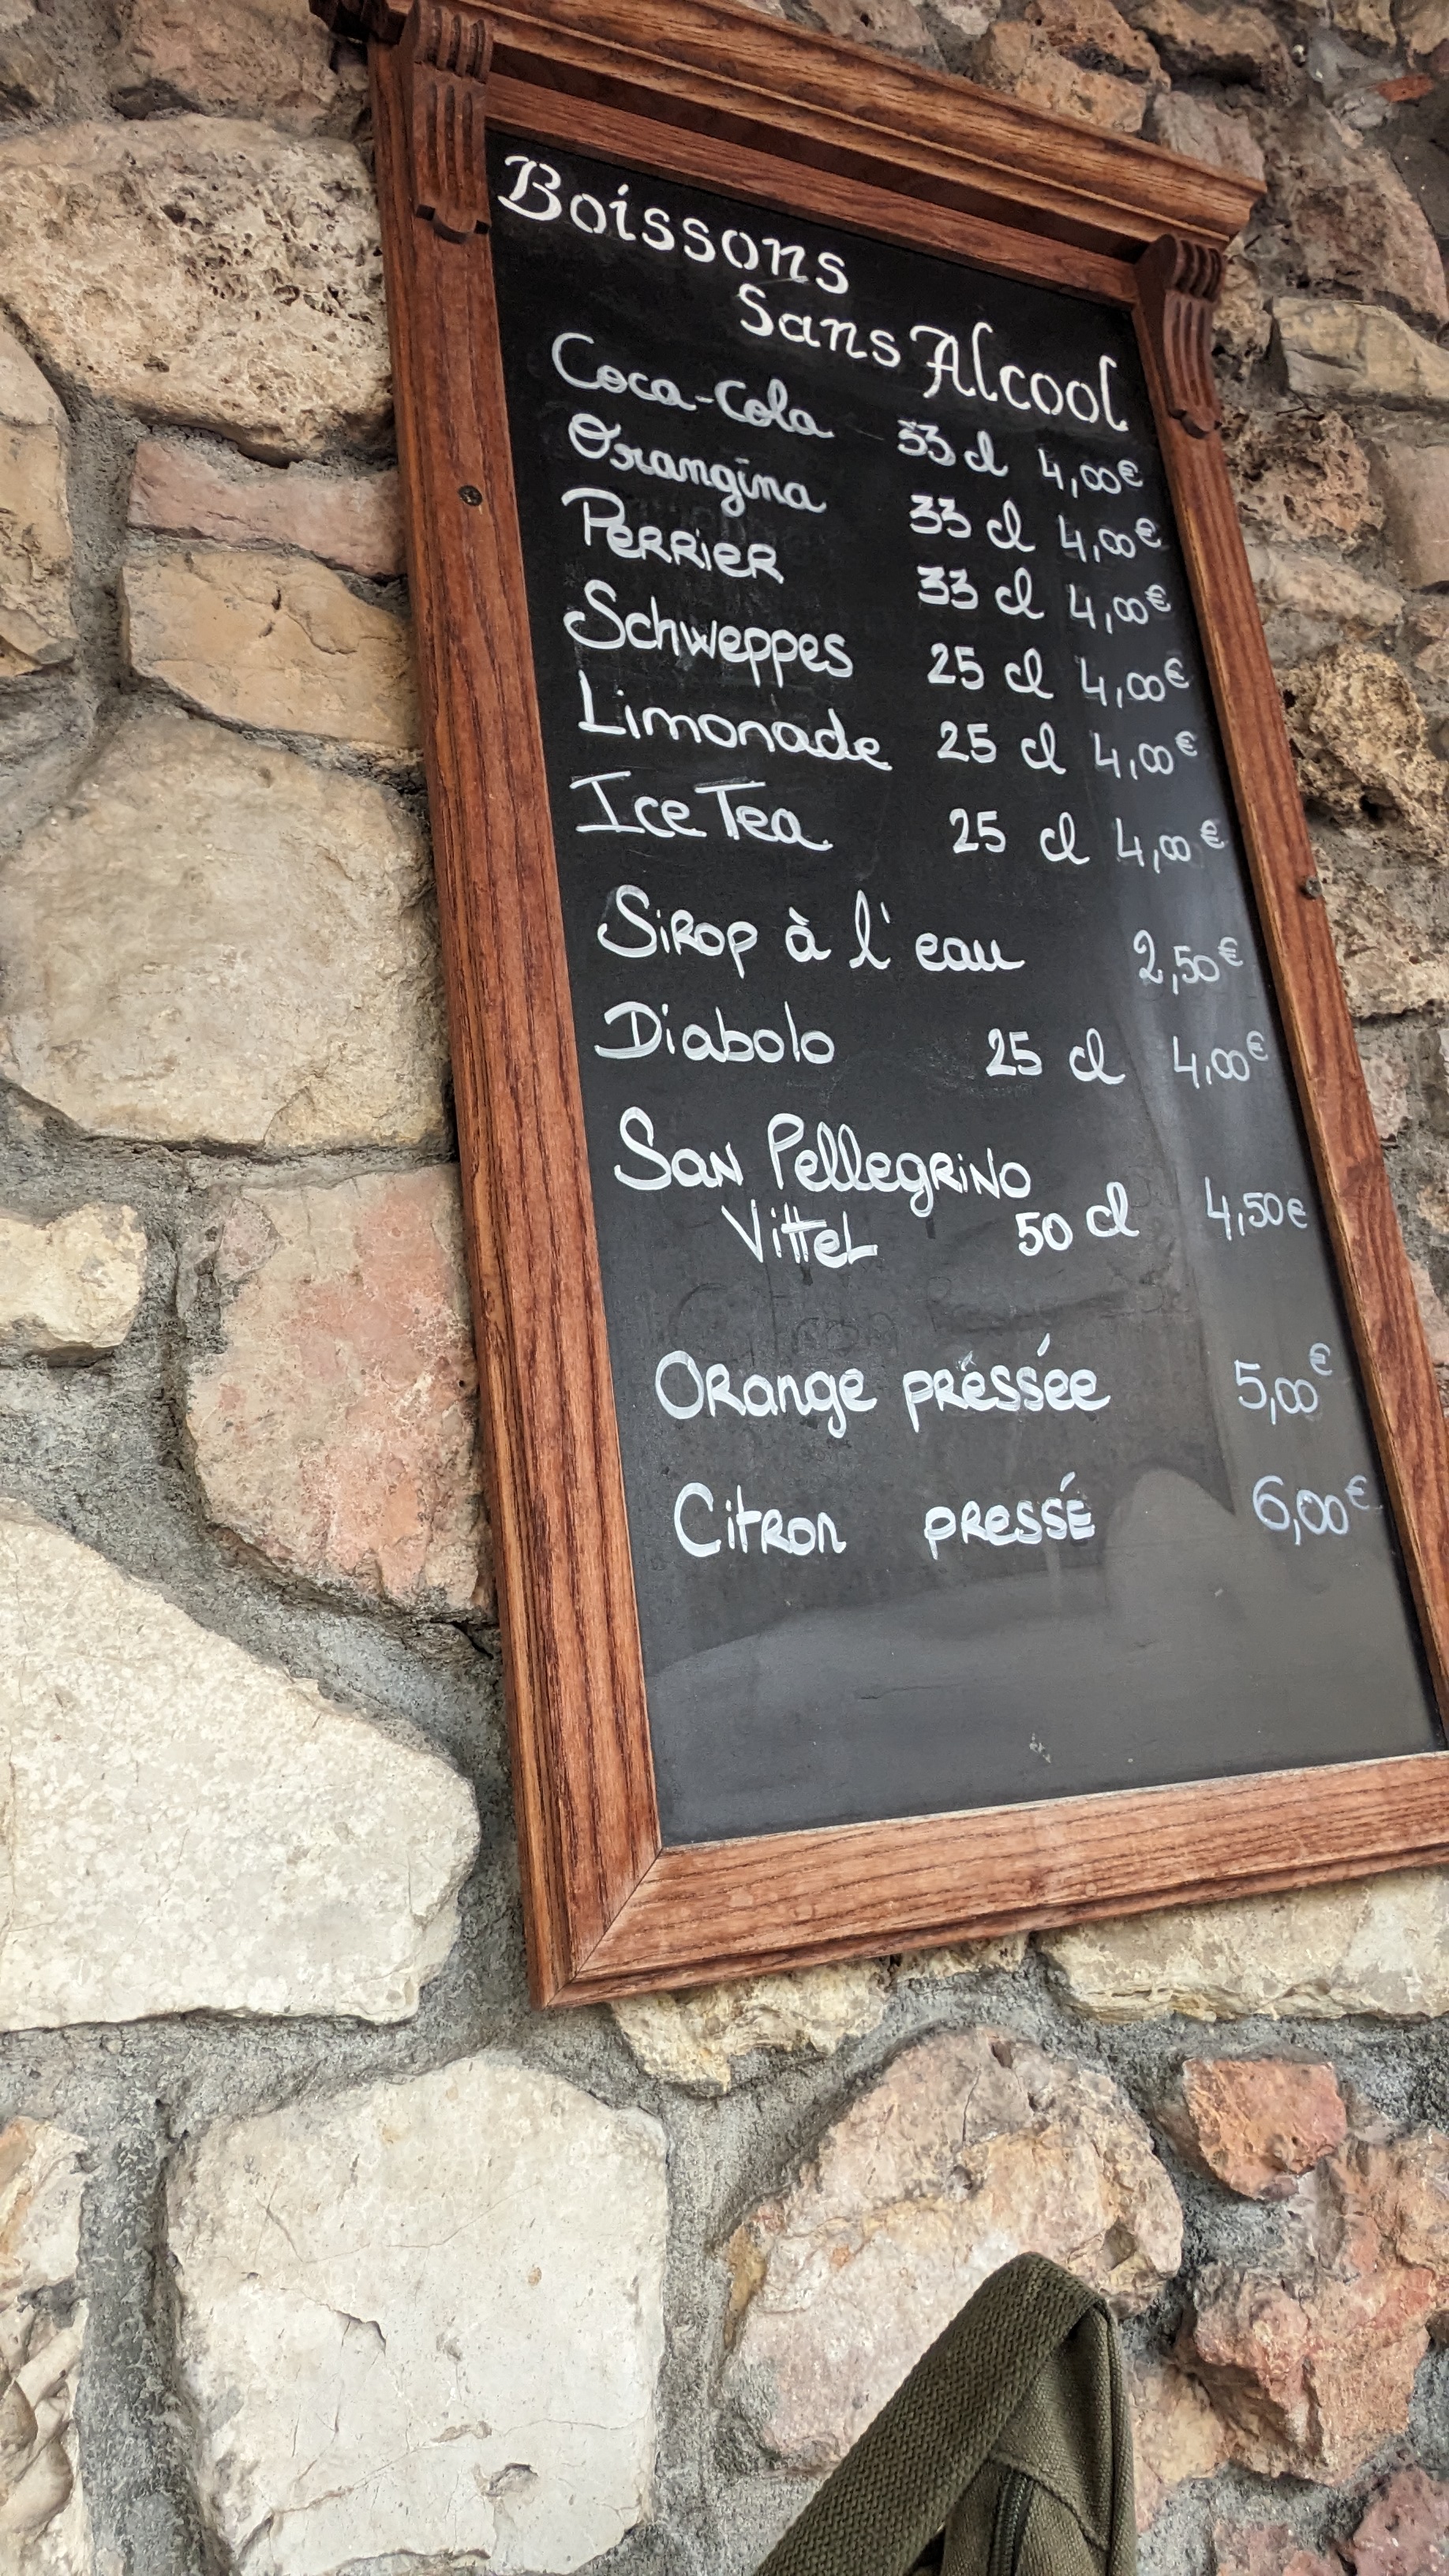 Boissons
Sans Alcool
Coca-Cola 33 cl 4,00€
Orangina 33 cl 4,00€
PERRiER 33 cl 4,00€
Schweppes 25 cl 4,00€
Limonade 25 cl 4,00€
Ice Tea 25 cl 4,00€
SiROP à l'eau 2,50€
Diabolo 25 cl 4,00€
San PellegRiNO
VitteL 50 cl 4,50€
ORange préssée 5,00€
CitRon pRessÉ 6,00€